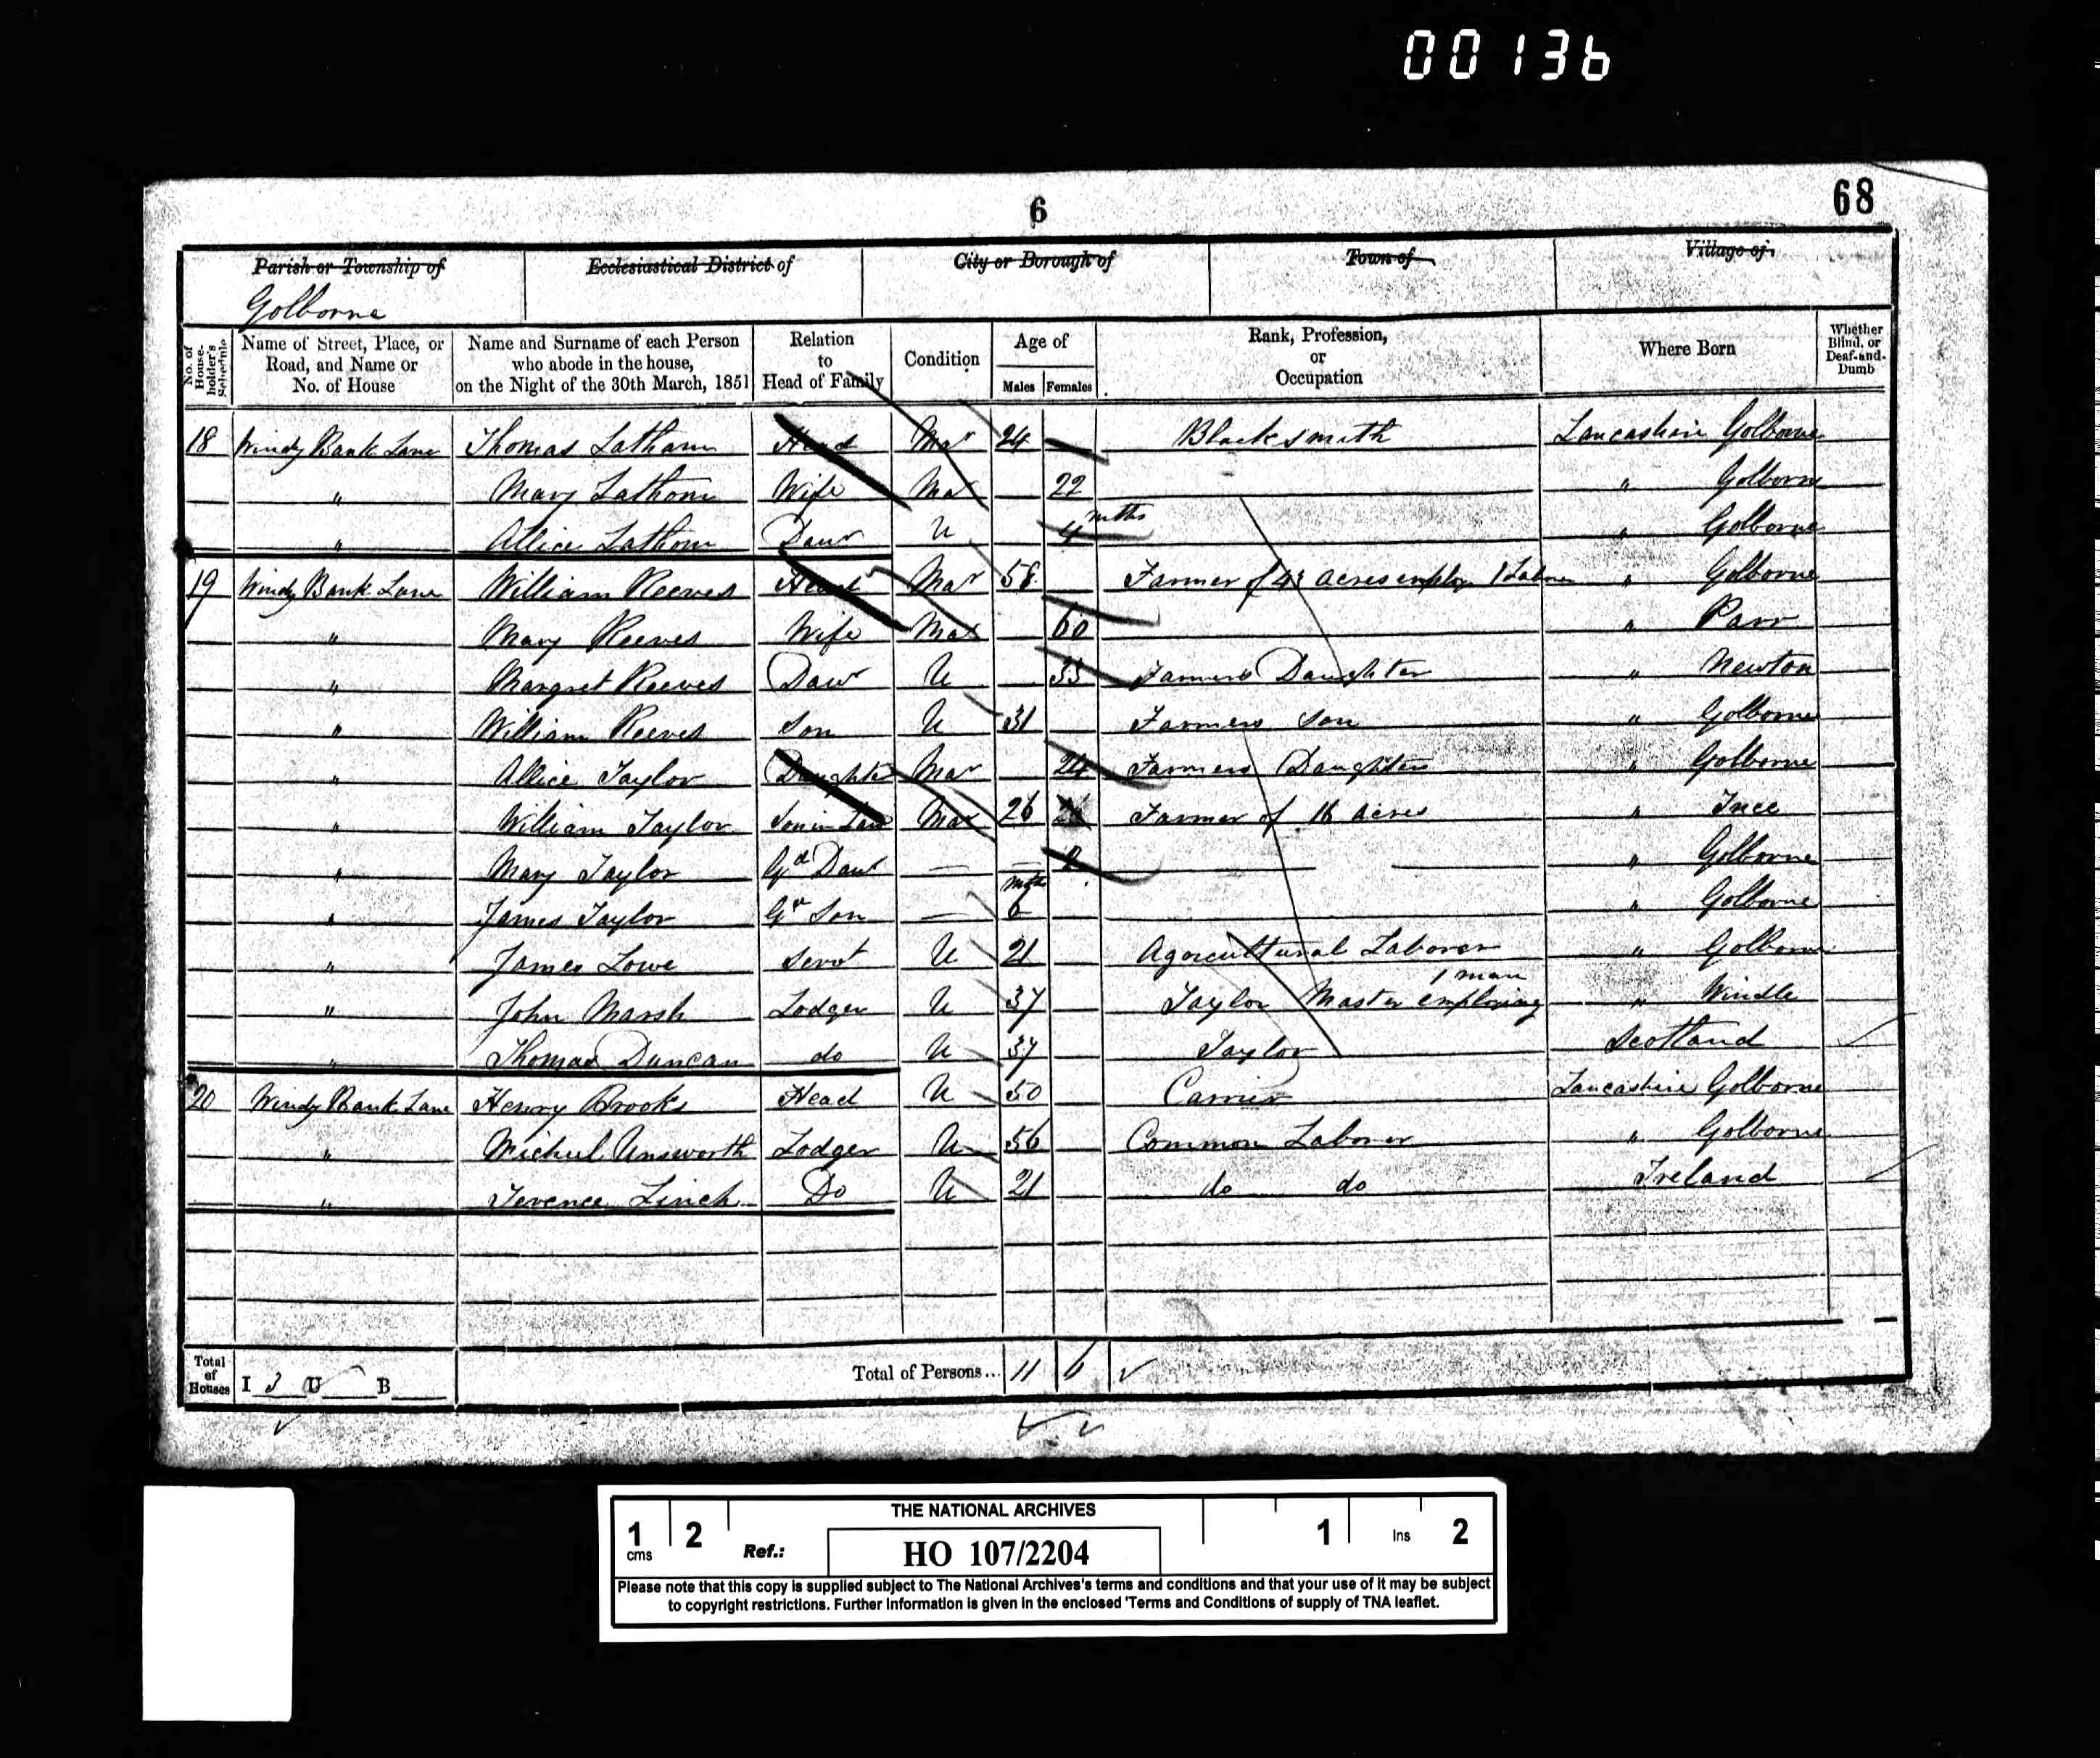 00136
6
68
Parish or Township of
Ecclesiastical District of
City or Borough of
Town of
Village of
Golborne
No. of House-holder's Schedule
Name of Street, Place, or Road, and Name or No. of House
Name and Surname of each Person who abode in the house, on the Night of the 30th March, 1851
Relation to Head of Family
Condition
Age of
Males Females
Rank, Profession, or Occupation
Where Born
Whether Blind, or Deaf-and-Dumb
18 Windy Bank Lane Thomas Latham Head Mar 24 Blacksmith Lancashire Golborne
" Mary Lathom Wife Mar 22 " Golborne
" Allice Lathom Daur U 4 mths " Golborne
19 Windy Bank Lane William Reeves Head Mar 58 Farmer of 43 acres employ 1 Labor " Golborne
" Mary Reeves Wife Mar 60 " Parr
" Margret Reeves Daur U 33 Farmers Daughter " Newton
" William Reeves Son U 31 Farmers Son " Golborne
" Allice Taylor Daughter Mar 24 Farmers Daughter " Golborne
" William Taylor Son in Law Mar 26 Farmer of 16 acres " Ince
" Mary Taylor Gd Daur — 2 " Golborne
" James Taylor Gd Son — mths 6 " Golborne
" James Lowe Servt U 21 Agricultural Laborer " Golborne
" John Marsh Lodger U 37 Taylor Master employing 1 man " Windle
" Thomas Duncan do U 37 Taylor Scotland
20 Windy Bank Lane Henry Brooks Head U 50 Carrier Lancashire Golborne
" Michael Unsworth Lodger U 56 Common Laborer " Golborne
" Terence Linch Do U 21 do do Ireland
Total of Houses I 3 U B
Total of Persons... 11 6
THE NATIONAL ARCHIVES
1 cms 2 Ref.: HO 107/2204 1 Ins 2
Please note that this copy is supplied subject to The National Archives's terms and conditions and that your use of it may be subject
to copyright restrictions. Further Information is given in the enclosed 'Terms and Conditions of supply of TNA leaflet.